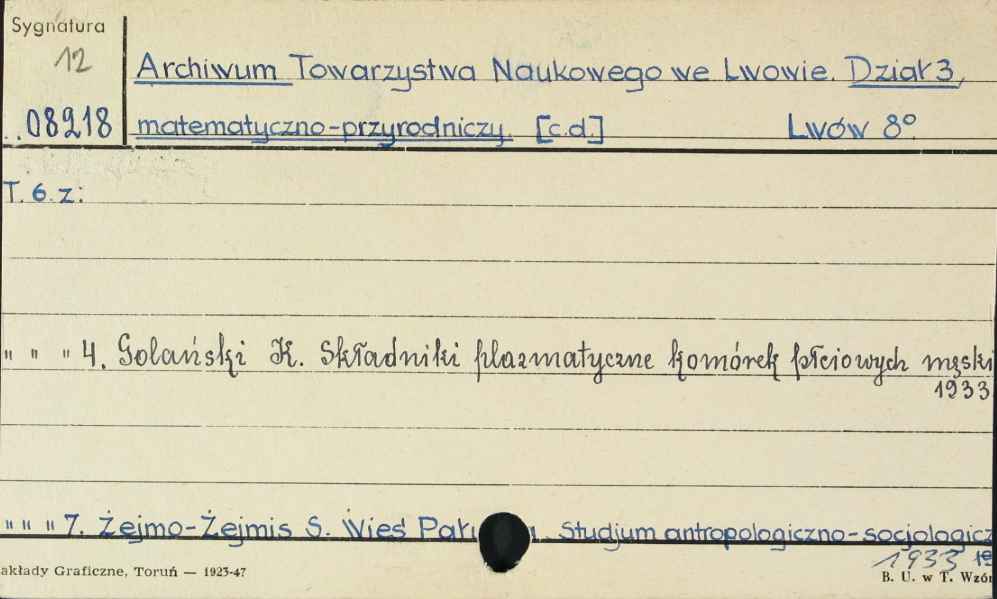 Sygnatura
12
08218
Archiwum Towarzystwa Naukowego we Lwowie. Dział 3,
matematyczno-przyrodniczy. [c.d.] Lwów 8º
T. 6. z:
" " " 4. Golański K. Składniki plazmatyczne komórek płciowych męski
1933
" " " 7. Żejmo-Żejmis S. Wieś Studjum antropologiczno-socjologicz
1933 19
akłady Graficzne, Toruń — 1923-47
B. U. w T. Wzór